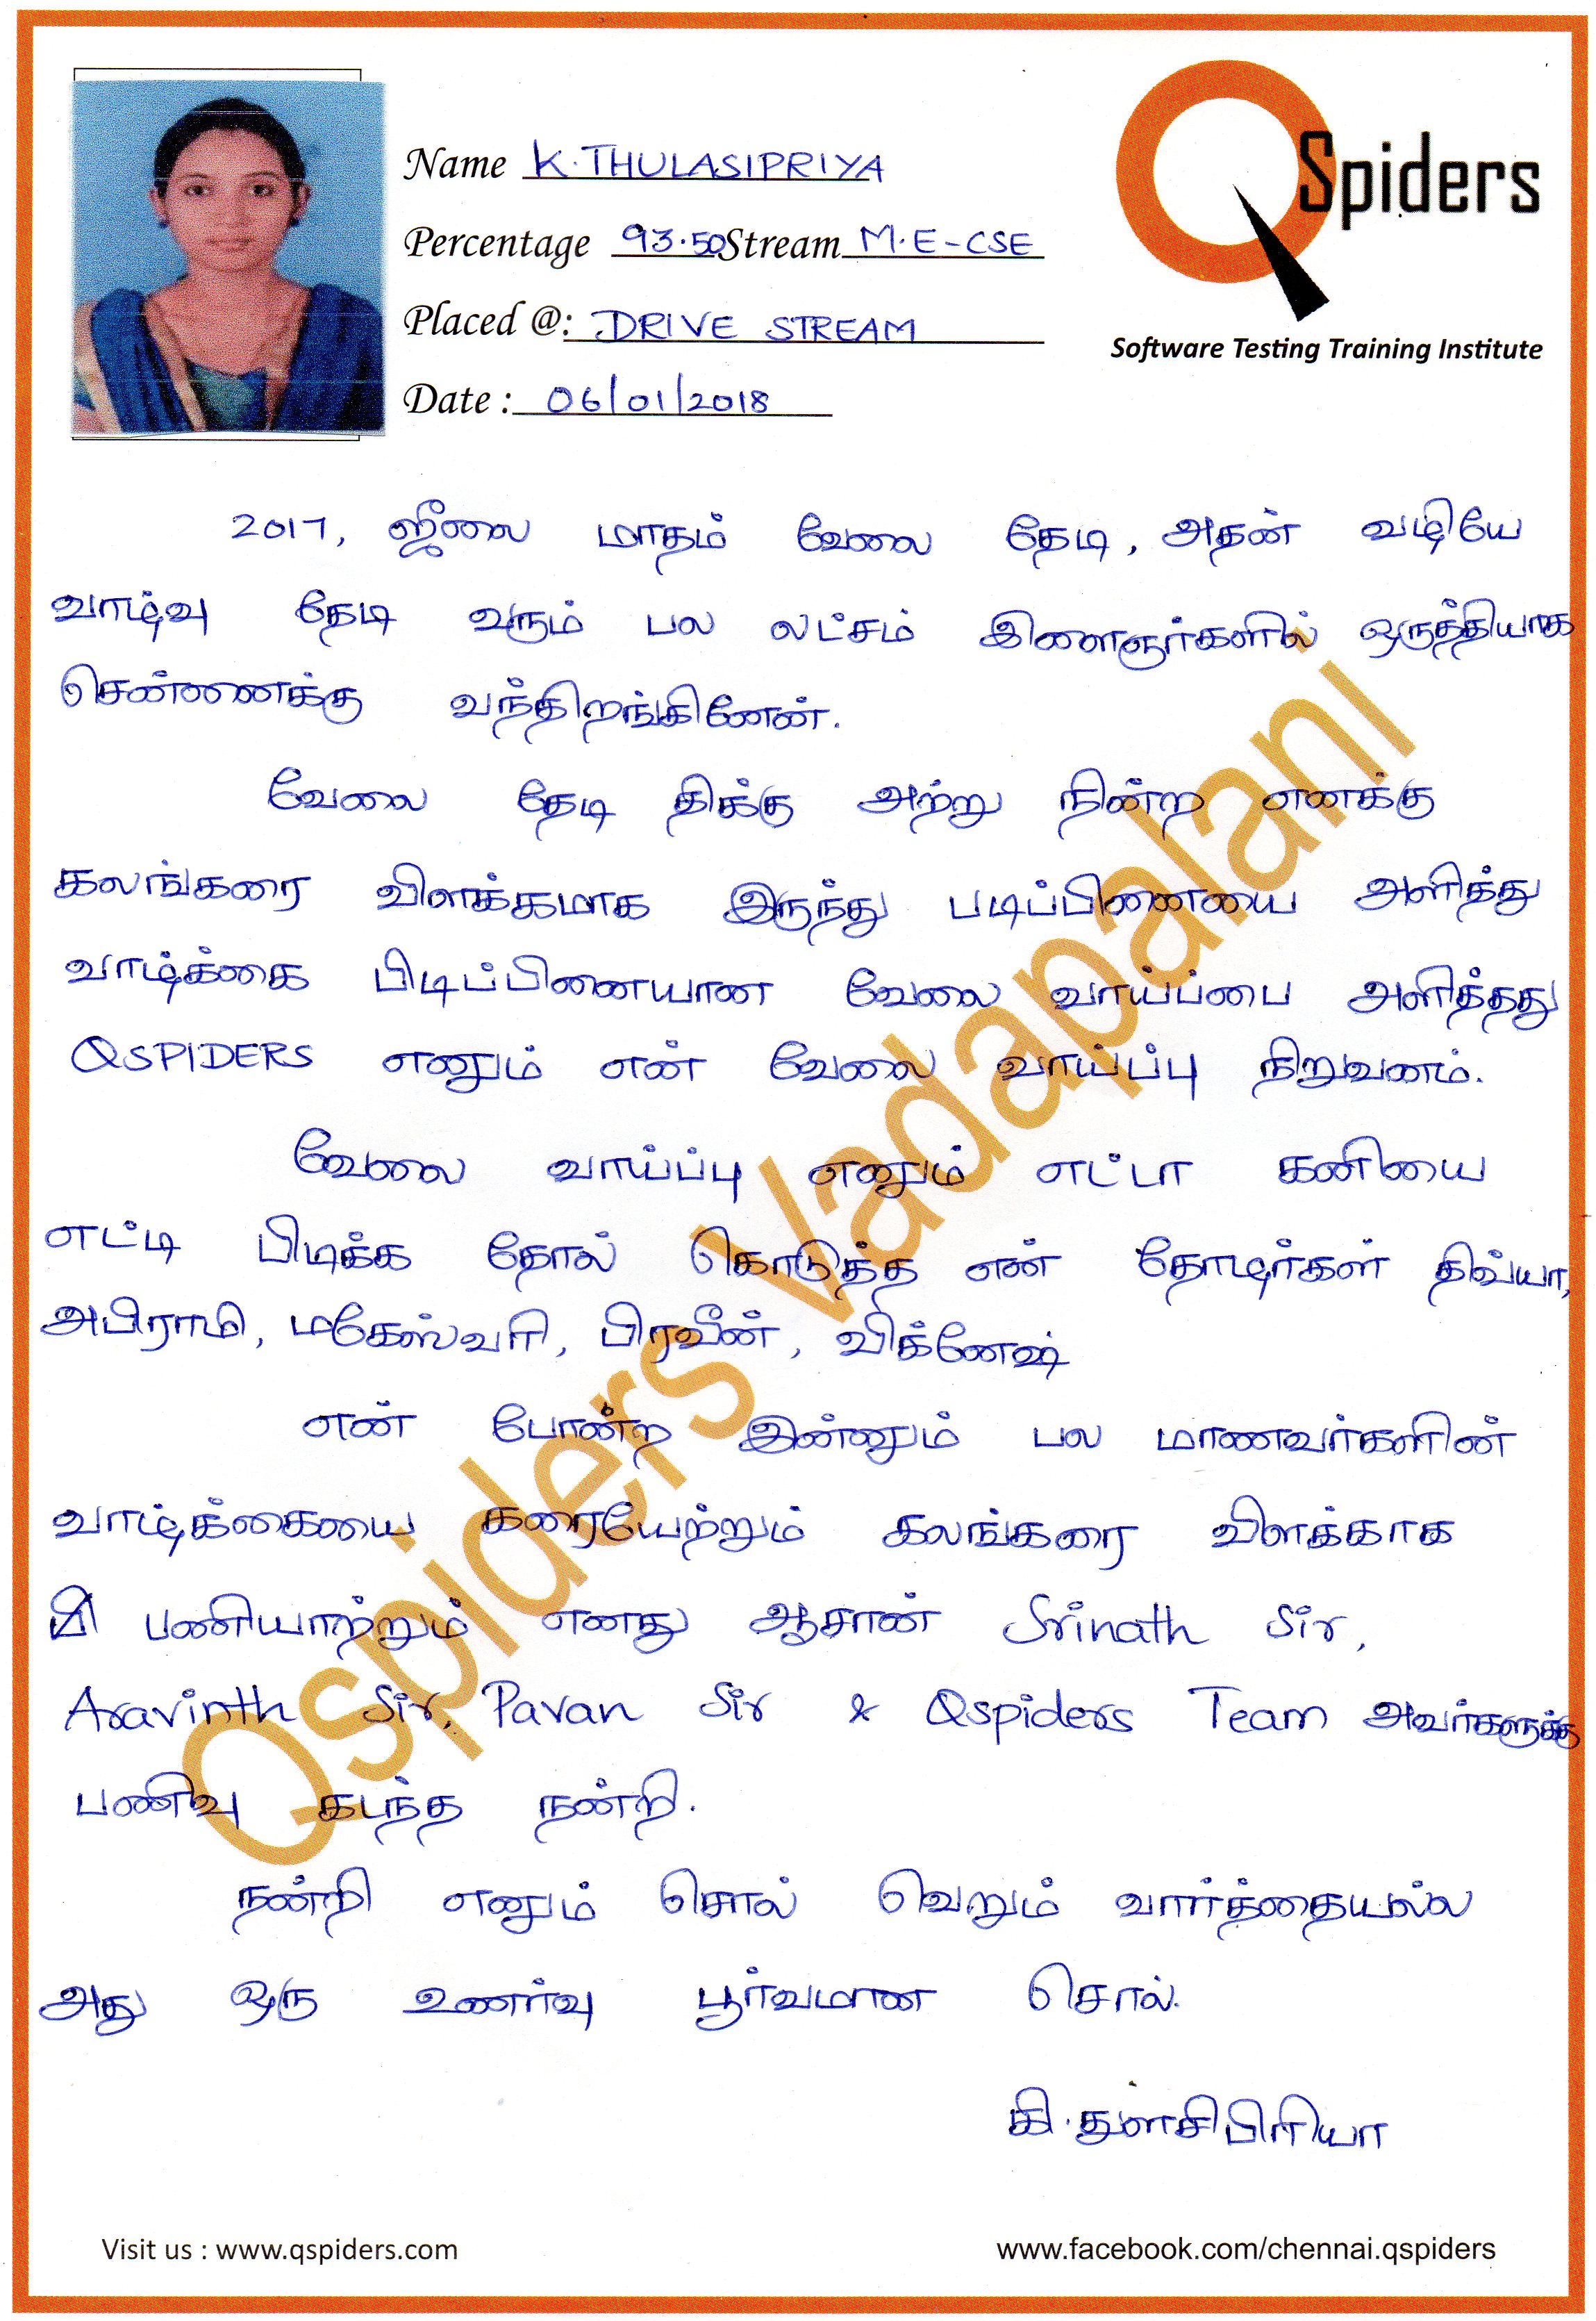 Name K.THULASIPRIYA
Percentage 93.50 Stream M.E-CSE
Placed @: DRIVE STREAM
Date : 06/01/2018
QSpiders
Software Testing Training Institute
2017, ஜீலை மாதம் வேலை தேடி, அதன் வழியே
வாழ்வு தேடி வரும் பல லட்சம் இளைஞர்களில் ஒருத்தியாக
சென்னைக்கு வந்திறங்கினேன்.
வேலை தேடி திக்கு அற்று நின்ற எனக்கு
கலங்கரை விளக்கமாக இருந்து படிப்பினையை அளித்து
வாழ்க்கை பிடிப்பினையான வேலை வாய்ப்பை அளித்தது
QSPIDERS எனும் என் வேலை வாய்ப்பு நிறுவனம்.
வேலை வாய்ப்பு எனும் எட்டா கனியை
எட்டி பிடிக்க தோல் கொடுத்த என் தோழர்கள் திவ்யா,
அபிராமி, மகேஸ்வரி, பிரவீன், விக்னேஷ்
என் போன்ற இன்னும் பல மாணவர்களின்
வாழ்க்கையை கரையேற்றும் கலங்கரை விளக்காக
பணியாற்றும் எனது ஆசான் Srinath Sir,
Aravinth Sir, Pavan Sir & Qspiders Team அவர்களுக்கு
பணிவு கடந்த நன்றி.
நன்றி எனும் சொல் வெறும் வார்த்தையல்ல
அது ஒரு உணர்வு பூர்வமான சொல்.
கி.துளசிபிரியா
Qspiders Vadapalani
Visit us : www.qspiders.com
www.facebook.com/chennai.qspiders